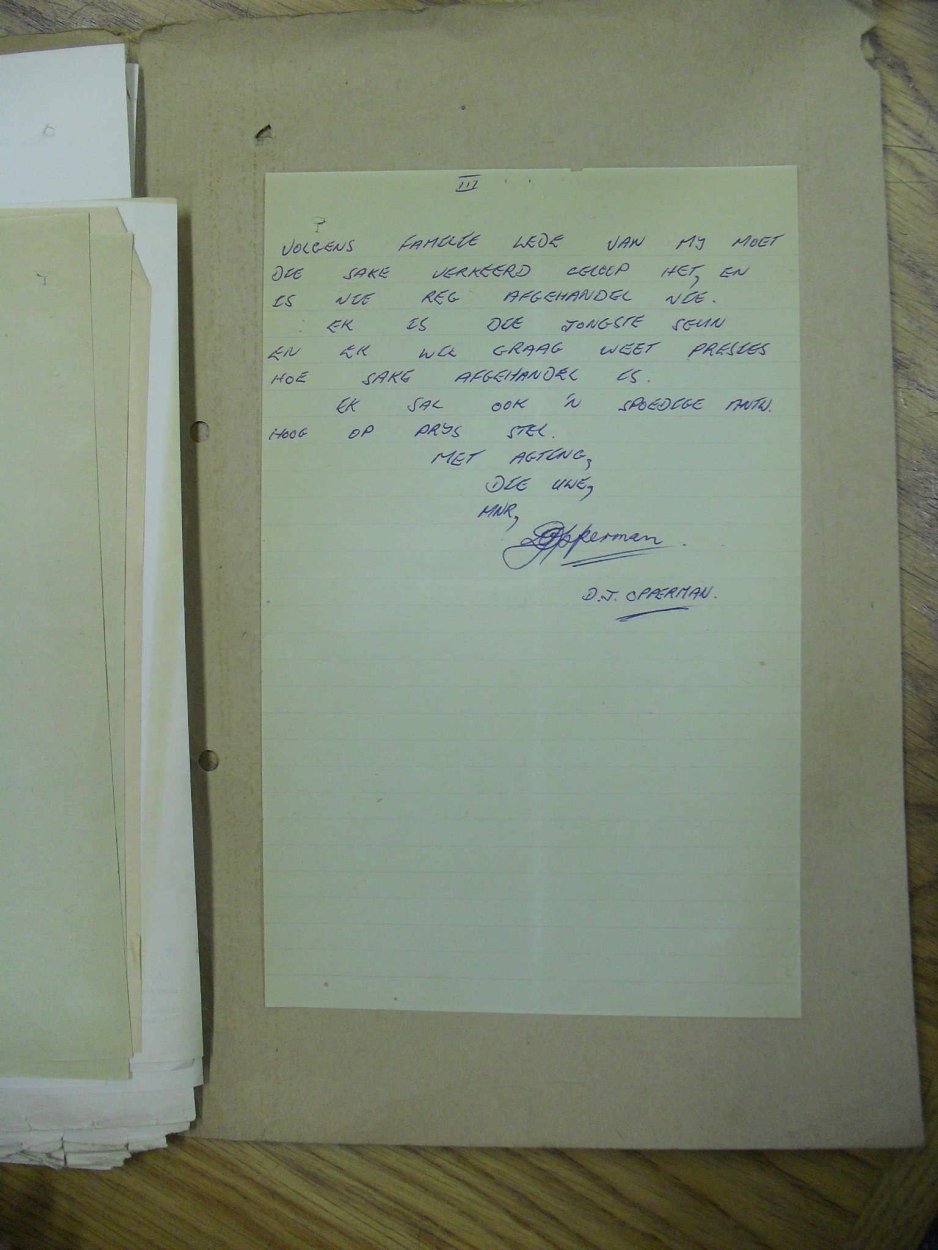 III
VOLGENS FAMILIE LEDE VAN MY MOET
DIE SAKE VERKEERD GELOOP HET, EN
IS NIE REG AFGEHANDEL NIE.
EK IS DIE JONGSTE SEUN
EN EK WIL GRAAG WEET PRESIES
HOE SAKE AFGEHANDEL IS.
EK SAL OOK 'N SPOEDIGE ANTW.
HOOG OP PRYS STEL.
MET AGTING,
DIE UWE,
MNR,
DJOpperman.
D.J. OPPERMAN.